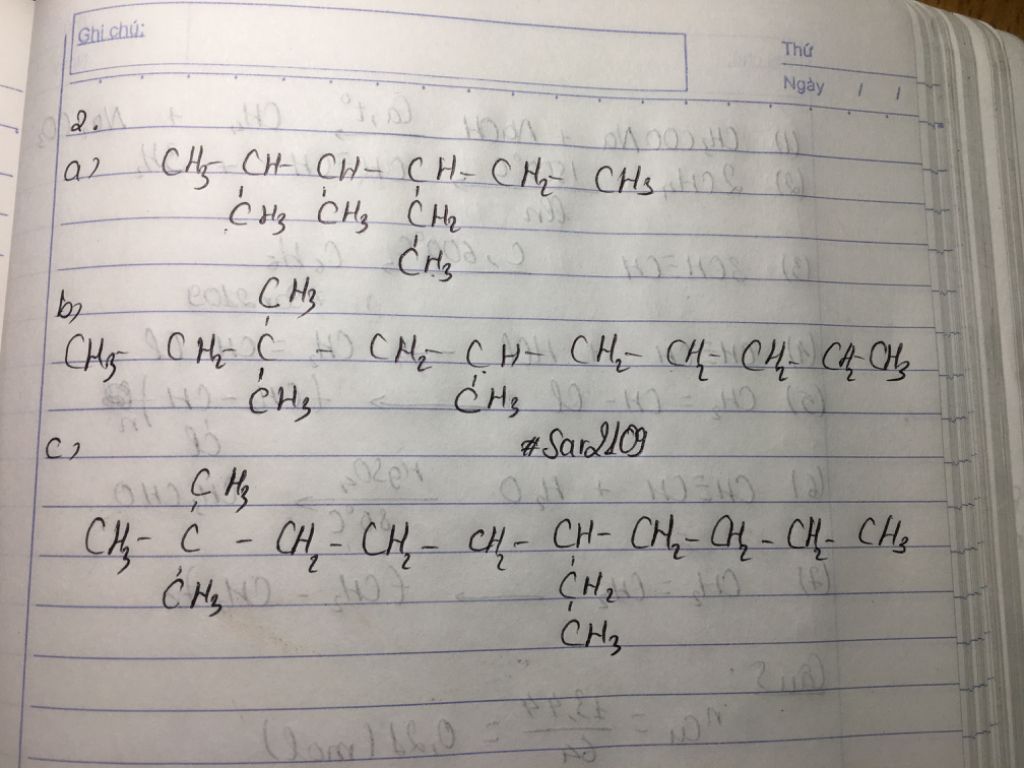 Ghi chú:
Thứ
Ngày / /
2.
a) CH3- CH- CH- CH- CH2- CH3
CH3 CH3 CH2
CH3
CH3
b)
CH3- CH2- C - CH2- CH- CH2- CH2- CH2- CH2- CH3
CH3 CH3
c) #Sar2109
CH3
CH3- C - CH2- CH2- CH2- CH- CH2- CH2- CH2- CH3
CH3 CH2
CH3